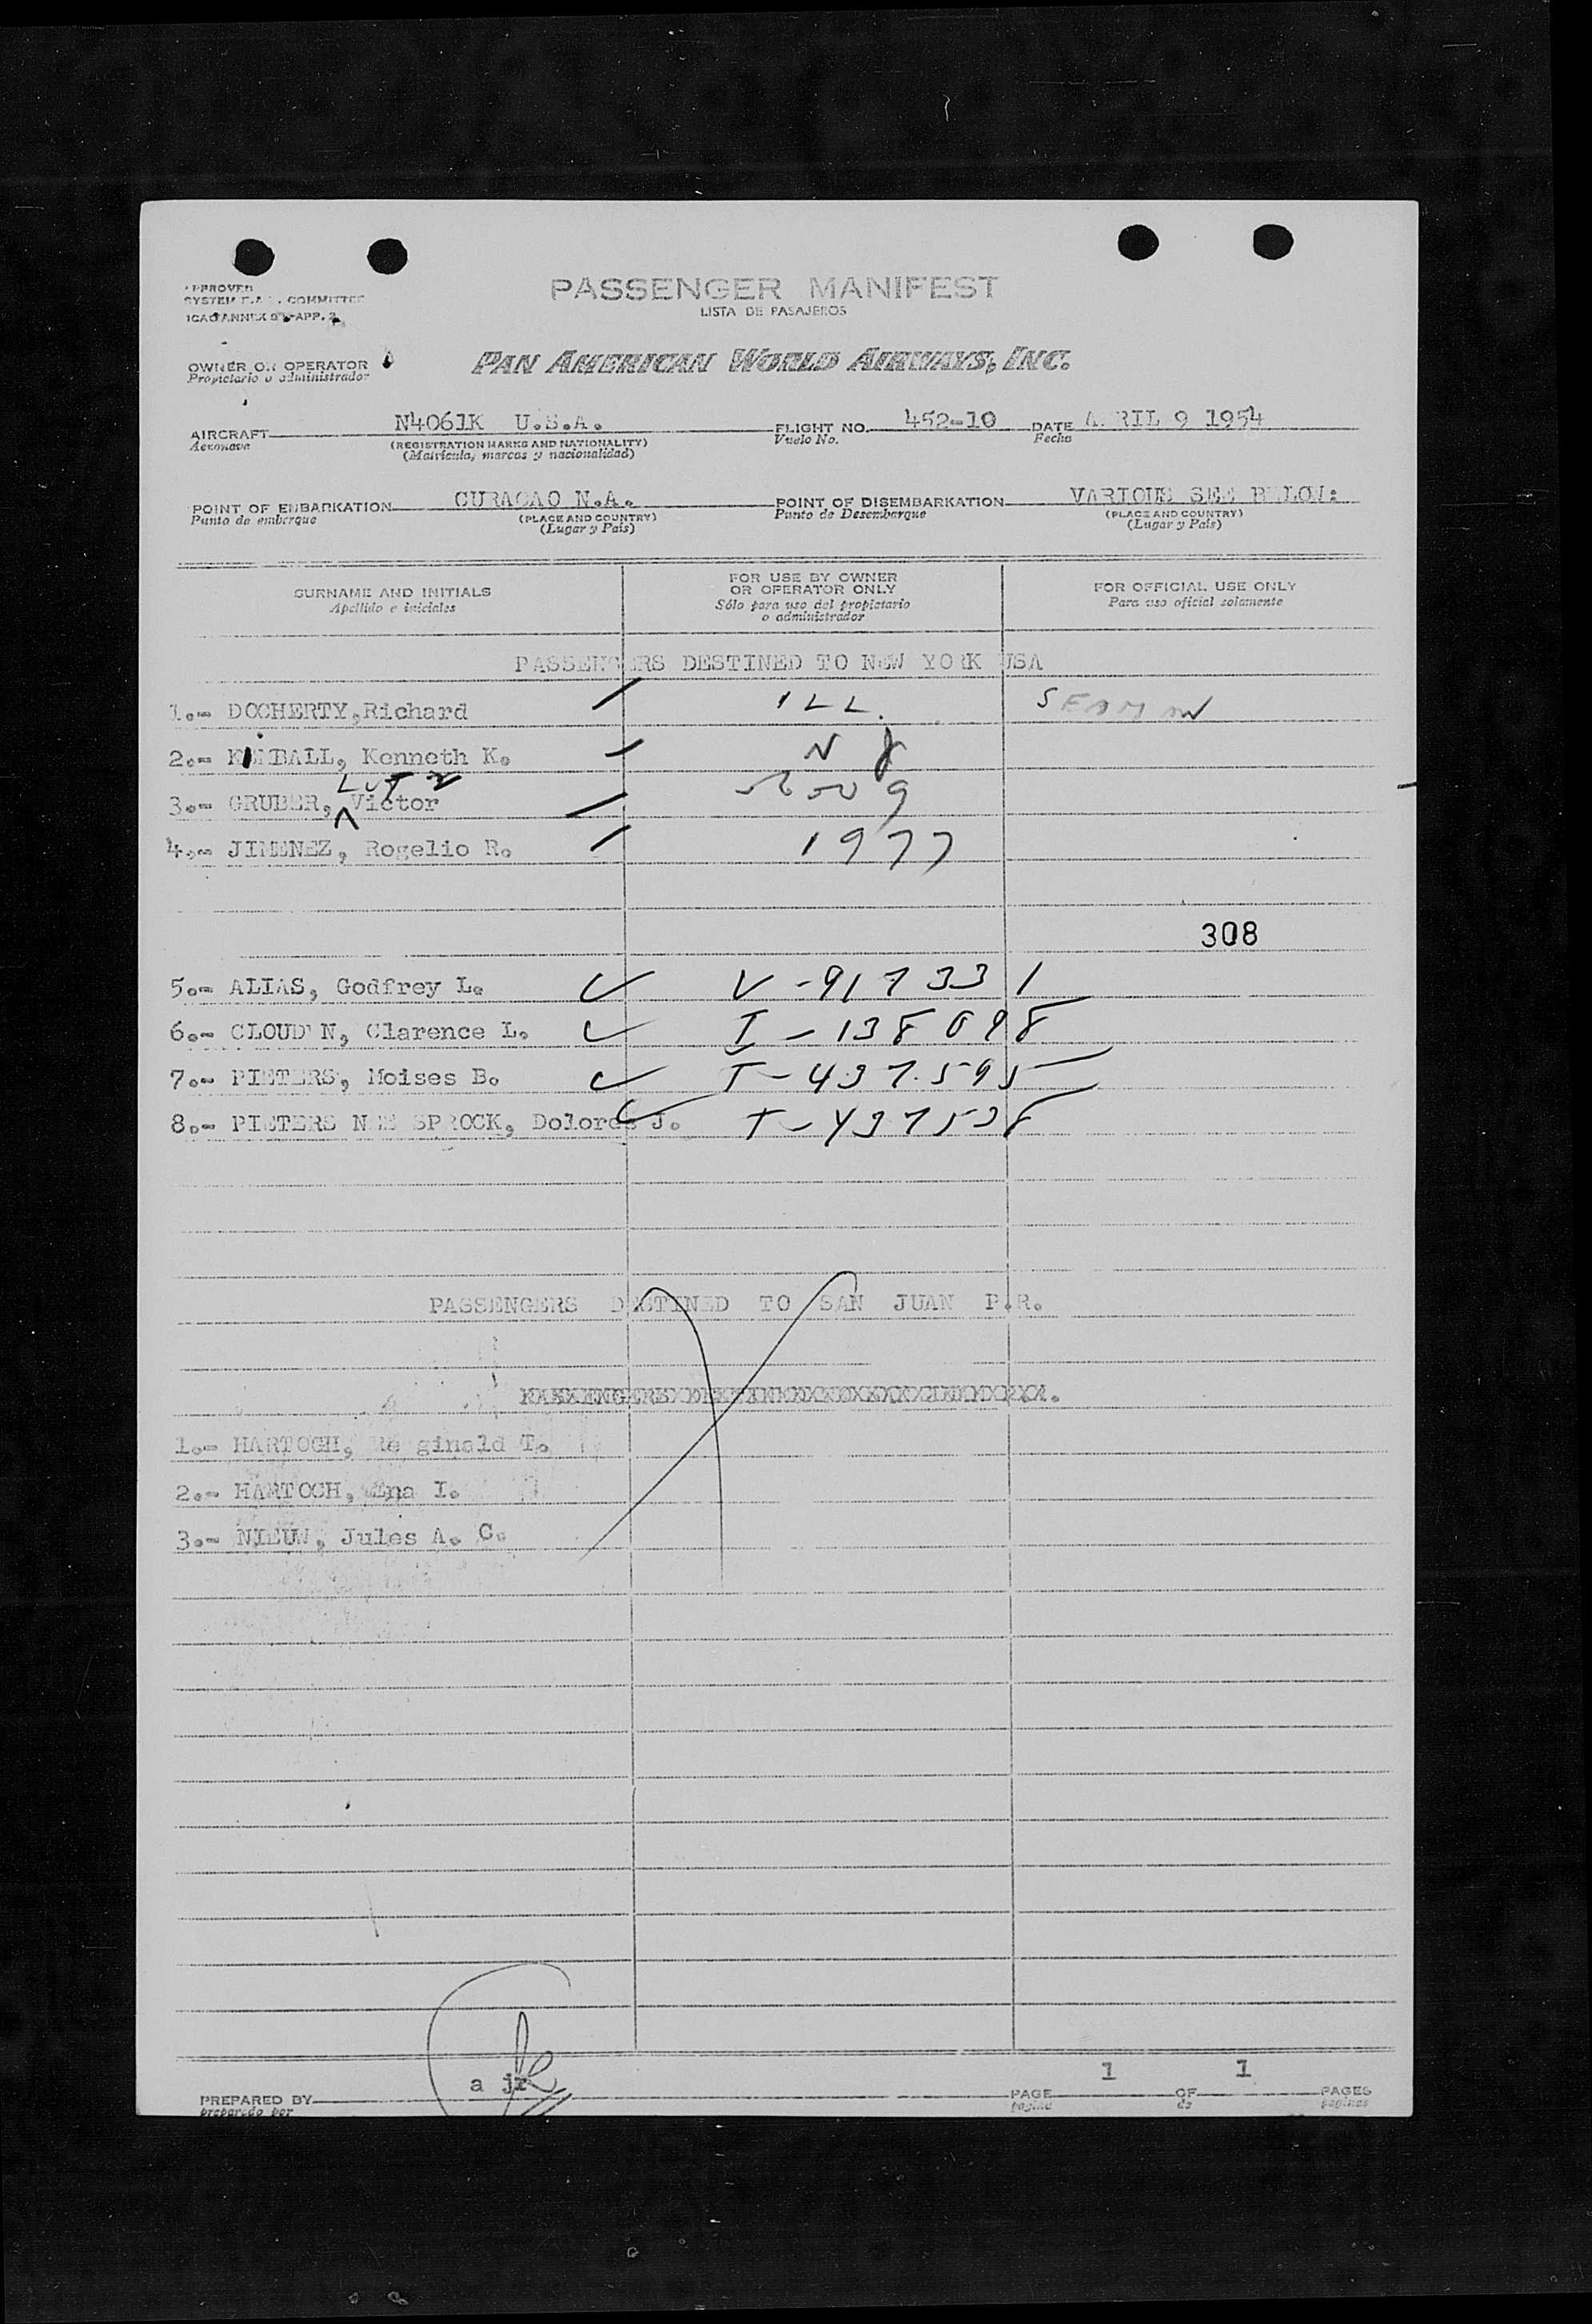 APPROVED
SYSTEM F.A.L. COMMITTEE
ICAO ANNEX 9 APP. 3
PASSENGER MANIFEST
LISTA DE PASAJEROS
OWNER OR OPERATOR
Propietario o administrador
PAN AMERICAN WORLD AIRWAYS, INC.
AIRCRAFT N4061K U.S.A. FLIGHT NO. 452-10 DATE A RIL 9 1954
Aeronave (REGISTRATION MARKS AND NATIONALITY) Vuelo No. Fecha
(Matrícula, marcas y nacionalidad)
POINT OF EMBARKATION CURACAO N.A. POINT OF DISEMBARKATION VARIOUS SEE BELOW:
Punto de emberque (PLACE AND COUNTRY) Punto de Desembarque (PLACE AND COUNTRY)
(Lugar y País) (Lugar y País)
SURNAME AND INITIALS FOR USE BY OWNER OR OPERATOR ONLY FOR OFFICIAL USE ONLY
Apellido e iniciales Sólo para uso del propietario o administrador Para uso oficial solamente
PASSENGERS DESTINED TO NEW YORK USA
1.- DOCHERTY,Richard ILL. SEAMAN
2.- KIMBALL, Kenneth K. N J
LUTZ
3.- GRUBER, Victor
4.- JIMENEZ, Rogelio R. 1977
308
5.- ALIAS, Godfrey L. V-917331
6.- CLOUD N, Clarence L. I-138098
7.- PIETERS, Moises B. T-437595
8.- PIETERS NEE SPROCK, Dolores J. T-437538
PASSENGERS DESTINED TO SAN JUAN P.R.
1.- HARTOCH, Re ginald T.
2.- HARTOCH, Ena I.
3.- NIEUW, Jules A. C.
PREPARED BY a jr PAGE 1 OF 1 PAGES
preparado por página de páginas